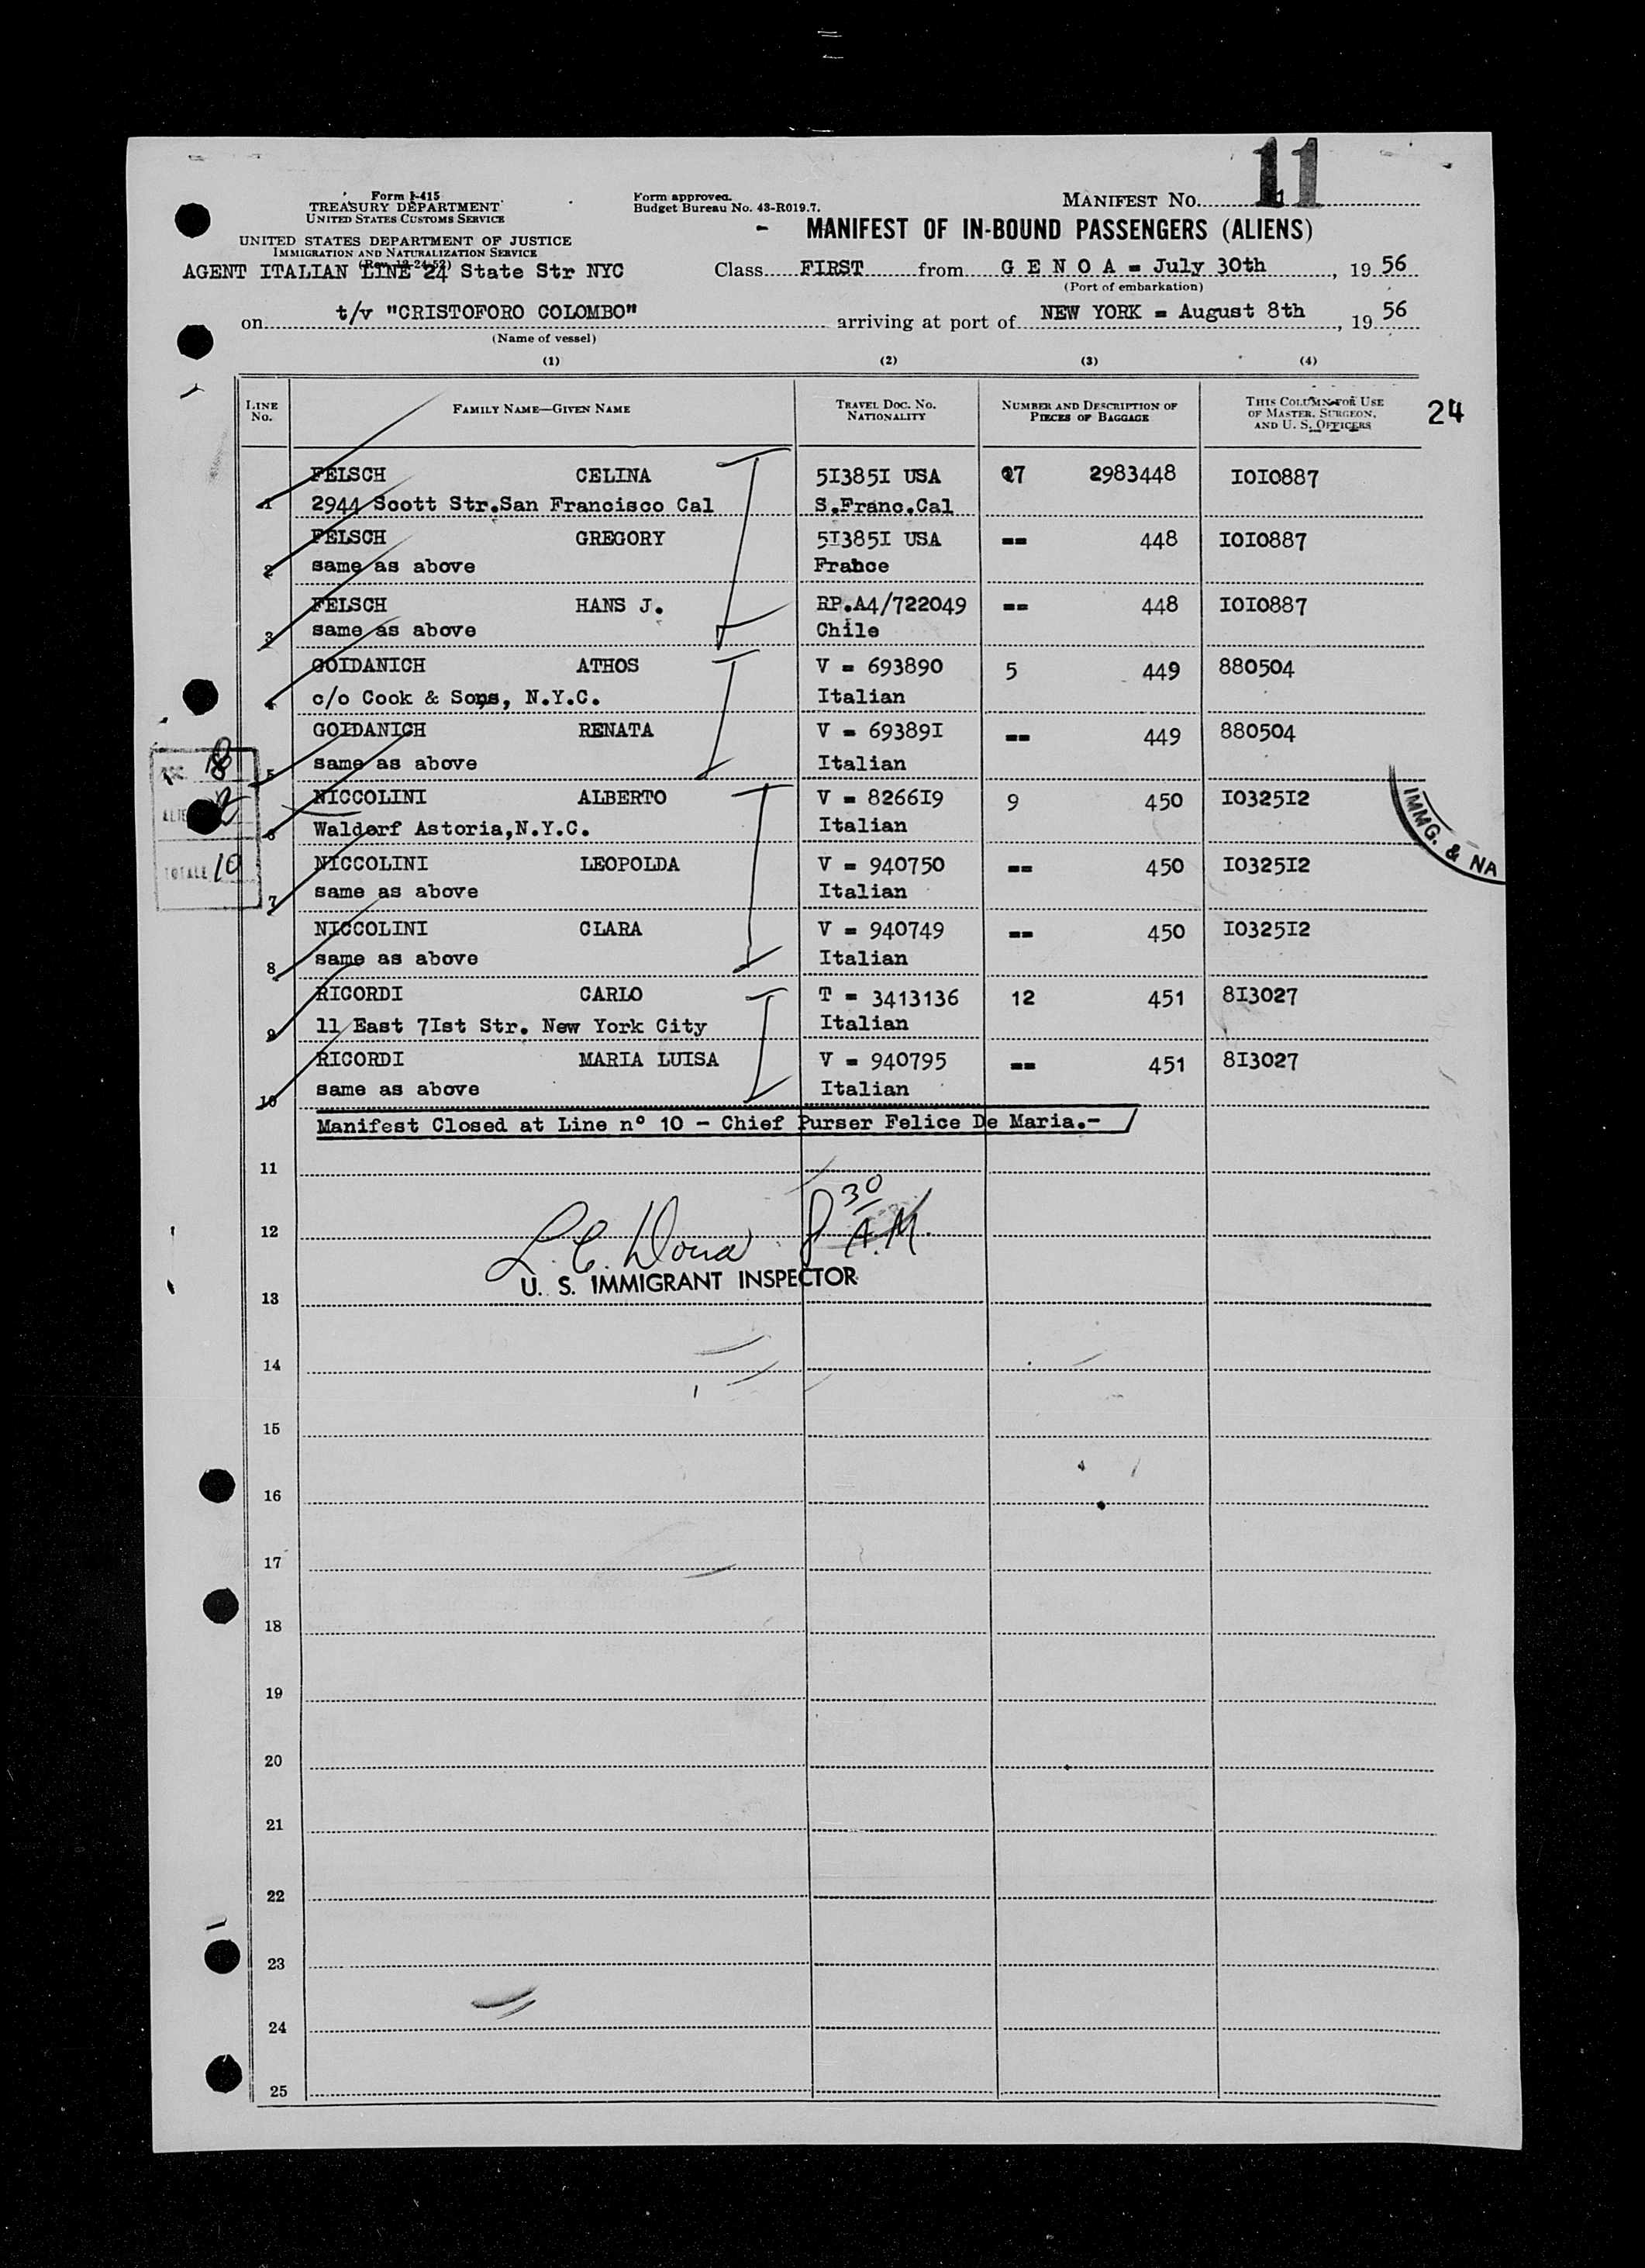 11
Form I-415
TREASURY DEPARTMENT
UNITED STATES CUSTOMS SERVICE
Form approved.
Budget Bureau No. 43-R019.7.
MANIFEST No.
MANIFEST OF IN-BOUND PASSENGERS (ALIENS)
UNITED STATES DEPARTMENT OF JUSTICE
IMMIGRATION AND NATURALIZATION SERVICE
(Rev. 12-24-52)
AGENT ITALIAN LINE 24 State Str NYC
Class FIRST from G E N O A = July 30th, 19 56
(Port of embarkation)
on t/v "CRISTOFORO COLOMBO" arriving at port of NEW YORK = August 8th, 19 56
(Name of vessel)
(1) (2) (3) (4)
LINE No. FAMILY NAME—GIVEN NAME TRAVEL DOC. No. NATIONALITY NUMBER AND DESCRIPTION OF PIECES OF BAGGAGE THIS COLUMN FOR USE OF MASTER, SURGEON, AND U. S. OFFICERS 24
FELSCH CELINA 5I385I USA 27 2983448 I0I0887
1 2944 Scott Str.San Francisco Cal S.Franc.Cal
FELSCH GREGORY 5I385I USA == 448 I0I0887
2 same as above France
FELSCH HANS J. RP.A4/722049 == 448 I0I0887
3 same as above Chile
GOIDANICH ATHOS V = 693890 5 449 880504
4 c/o Cook & Sons, N.Y.C. Italian
GOIDANICH RENATA V = 69389I == 449 880504
5 same as above Italian
NICCOLINI ALBERTO V = 8266I9 9 450 I0325I2
6 Waldorf Astoria,N.Y.C. Italian
NICCOLINI LEOPOLDA V = 940750 == 450 I0325I2
7 same as above Italian
NICCOLINI CLARA V = 940749 == 450 I0325I2
8 same as above Italian
RICORDI CARLO T = 3413136 12 451 8I3027
9 11 East 7Ist Str. New York City Italian
RICORDI MARIA LUISA V = 940795 == 451 8I3027
10 same as above Italian
Manifest Closed at Line nº 10 - Chief Purser Felice De Maria.-
8
2
TOTALE 10
IMMG. & NA
11
12
8 30 A.M.
U. S. IMMIGRANT INSPECTOR
13
14
15
16
17
18
19
20
21
22
23
24
25